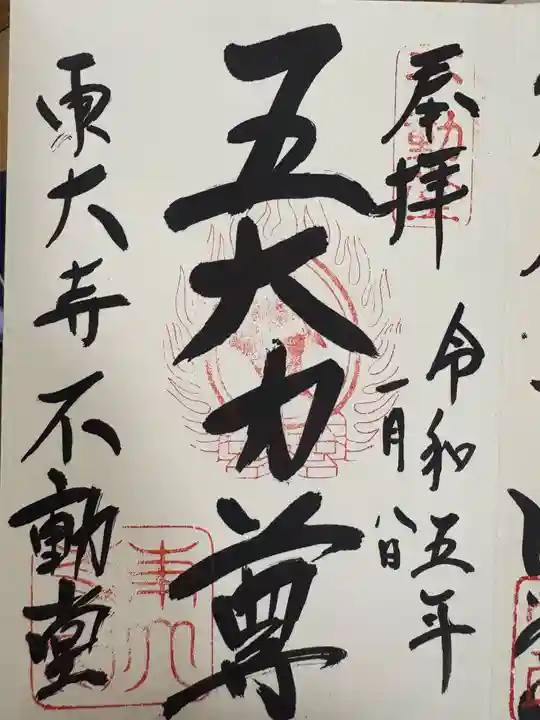 奉拝
令和五年
一月八日
五大力尊
東大寺不動堂